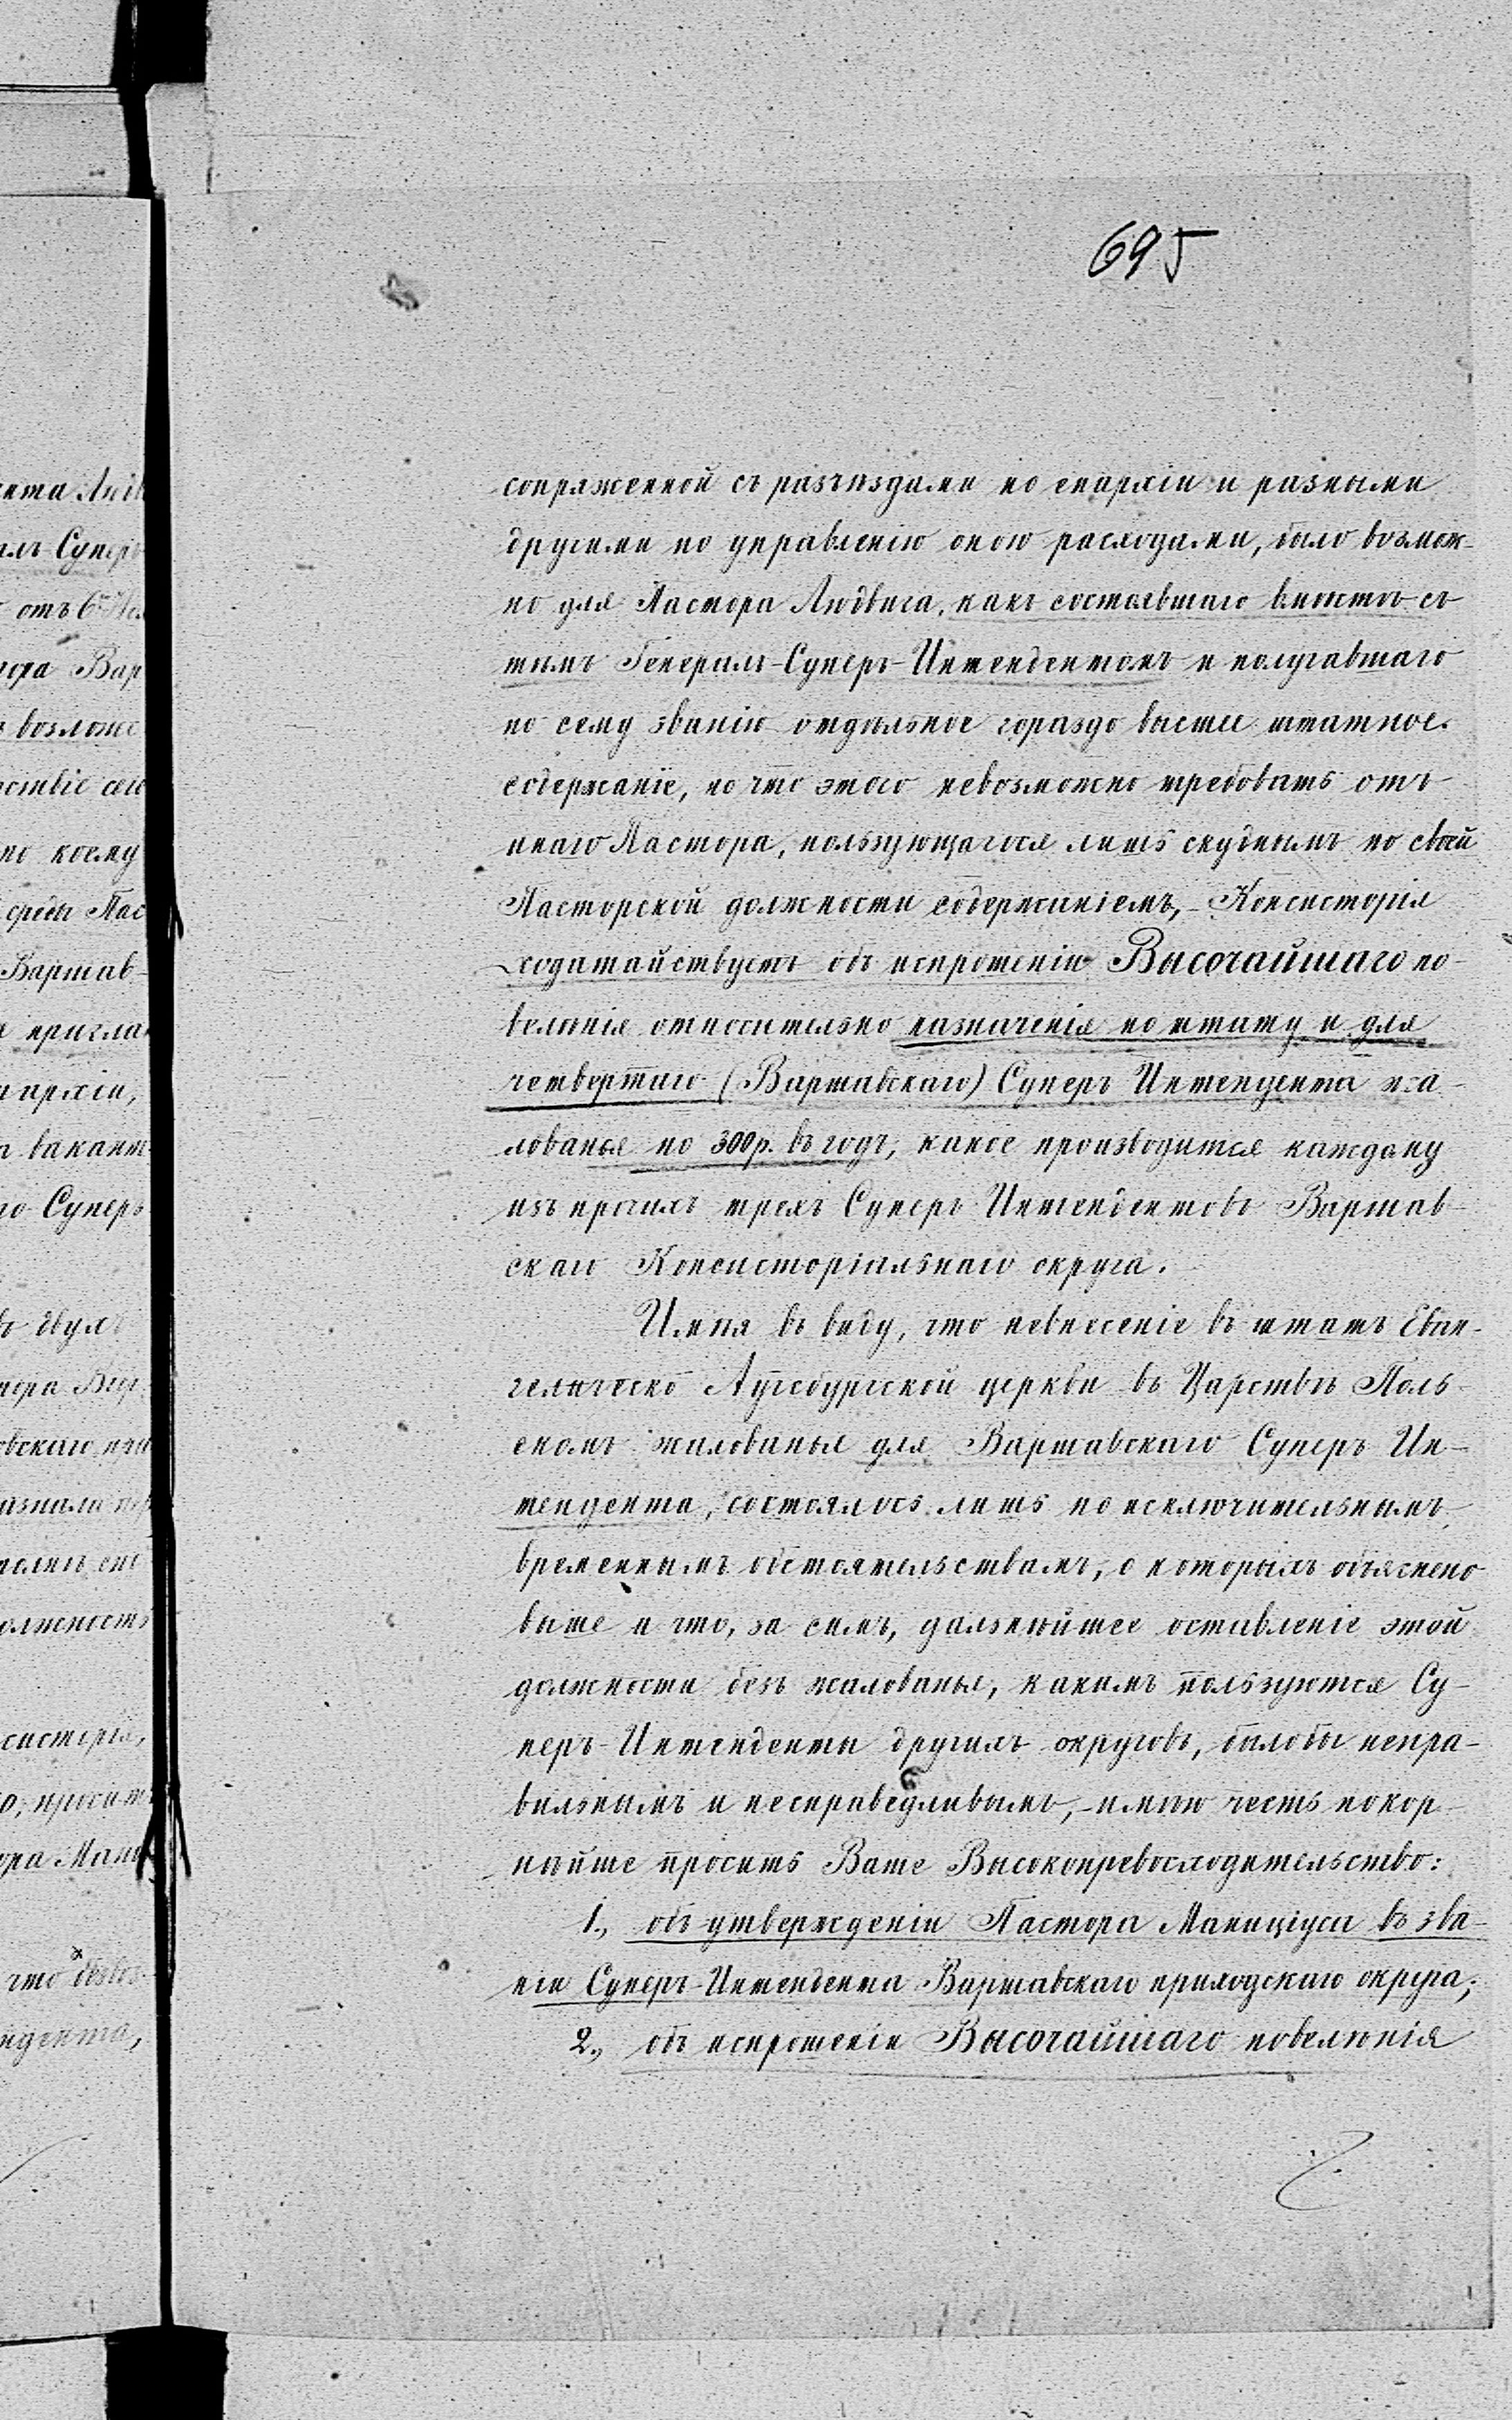 695
сопряженной съ разъѣздами по епархіи и разными
другими по управленію оною расходами, было возмож-
но для Пастора Людвига, какъ состоявшаго вмѣстѣ съ
тѣмъ Генералъ-Суперъ-Интендентомъ и получавшаго
по сему званію отдѣльное гораздо высшее штатное
содержаніе, но что этого невозможно требовать отъ
инаго Пастора, пользующагося лишь скуднымъ по своей
Пасторской должности содержаніемъ, - Консисторія
ходатайствуетъ объ испрошеніи Высочайшаго по-
велѣнія относительно назначенія по штату и для
четвертаго (Варшавскаго) Суперъ Интендента жа-
лованья по 300 р. въ годъ, какое производится каждому
изъ прочихъ трехъ Суперъ Интендентовъ Варшав-
скаго Консисторіальнаго округа.
Имѣя въ виду, что невнесеніе въ штатъ Еван-
гелическо Аугсбургской церкви въ Царствѣ Поль-
скомъ жалованья для Варшавскаго Суперъ Ин-
тендента, состоялось лишь по исключительнымъ,
временнымъ обстоятельствамъ, о которыхъ объяснено
выше и что, за симъ, дальнѣйшее оставленіе этой
должности безъ жалованья, какимъ пользуются Су-
перъ-Интенденты другихъ округовъ, былобы непра-
вильнымъ и несправедливымъ, - имѣю честь покор-
нѣйше просить Ваше Высокопревосходительство:
1., объ утвержденіи Пастора Маниціуса въ зва-
ніи Суперъ-Интендента Варшавскаго приходскаго округа;
2., объ испрошеніи Высочайшаго повелѣнія